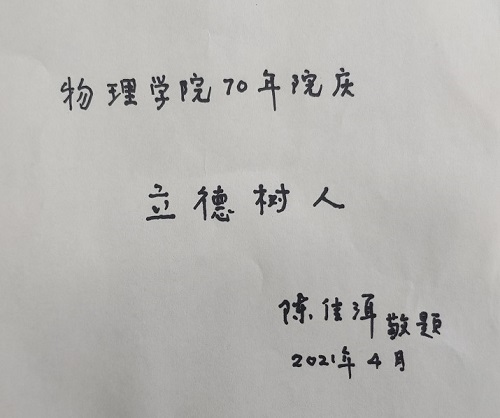 物理学院70年院庆
立德树人
陈佳洱敬题
2021年4月